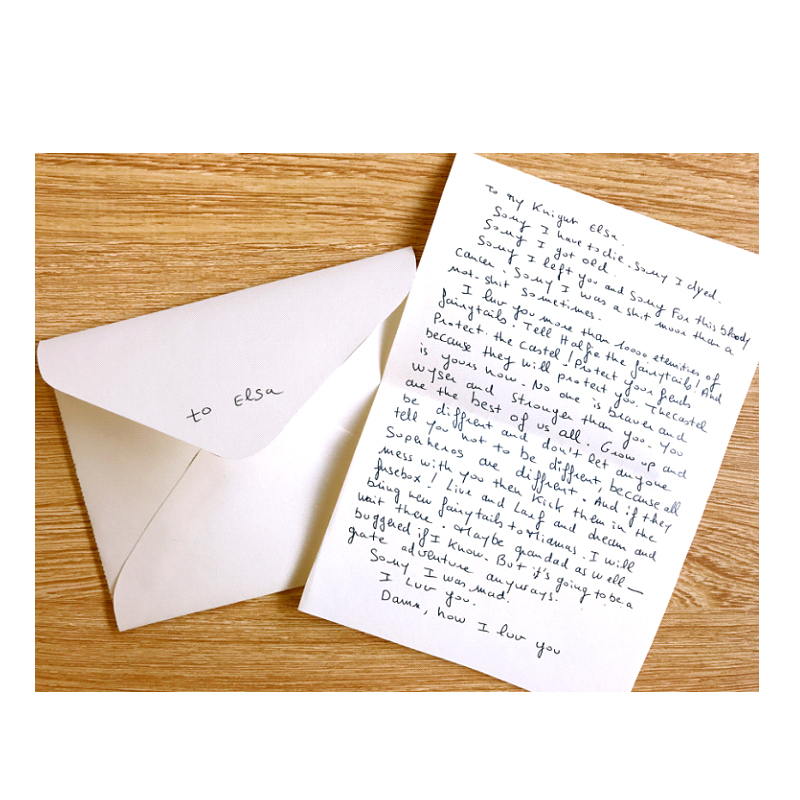 to Elsa
to My Knight Elsa.
Sorry I have to die. Sorry I dyed.
Sorry I got old.
Sorry I left you and Sorry For this bloody
cancer. Sorry I was a shit more than a
not-shit Sometimes.
I luv you more than 10000 eternities of
fairytails. Tell Halfie the fairytails! And
Protect the castel! Protect your friends
because they will protect you. The castel
is yours now. No one is braver and
wyser and Stronger than you. You
are the best of us all. Grow up and
be diffrent and don't let anyone
tell you not to be diffrent, because all
Superheros are diffrent. And if they
mess with you then Kick them in the
fusebox! Live and Larf and dream and
bring new fairytails to Miamas. I will
wait there. Maybe grandad as well —
buggered if I know. But it's going to be a
grate adventure anyways.
Sorry I was mad.
I Luv you.
Damn, how I luv you